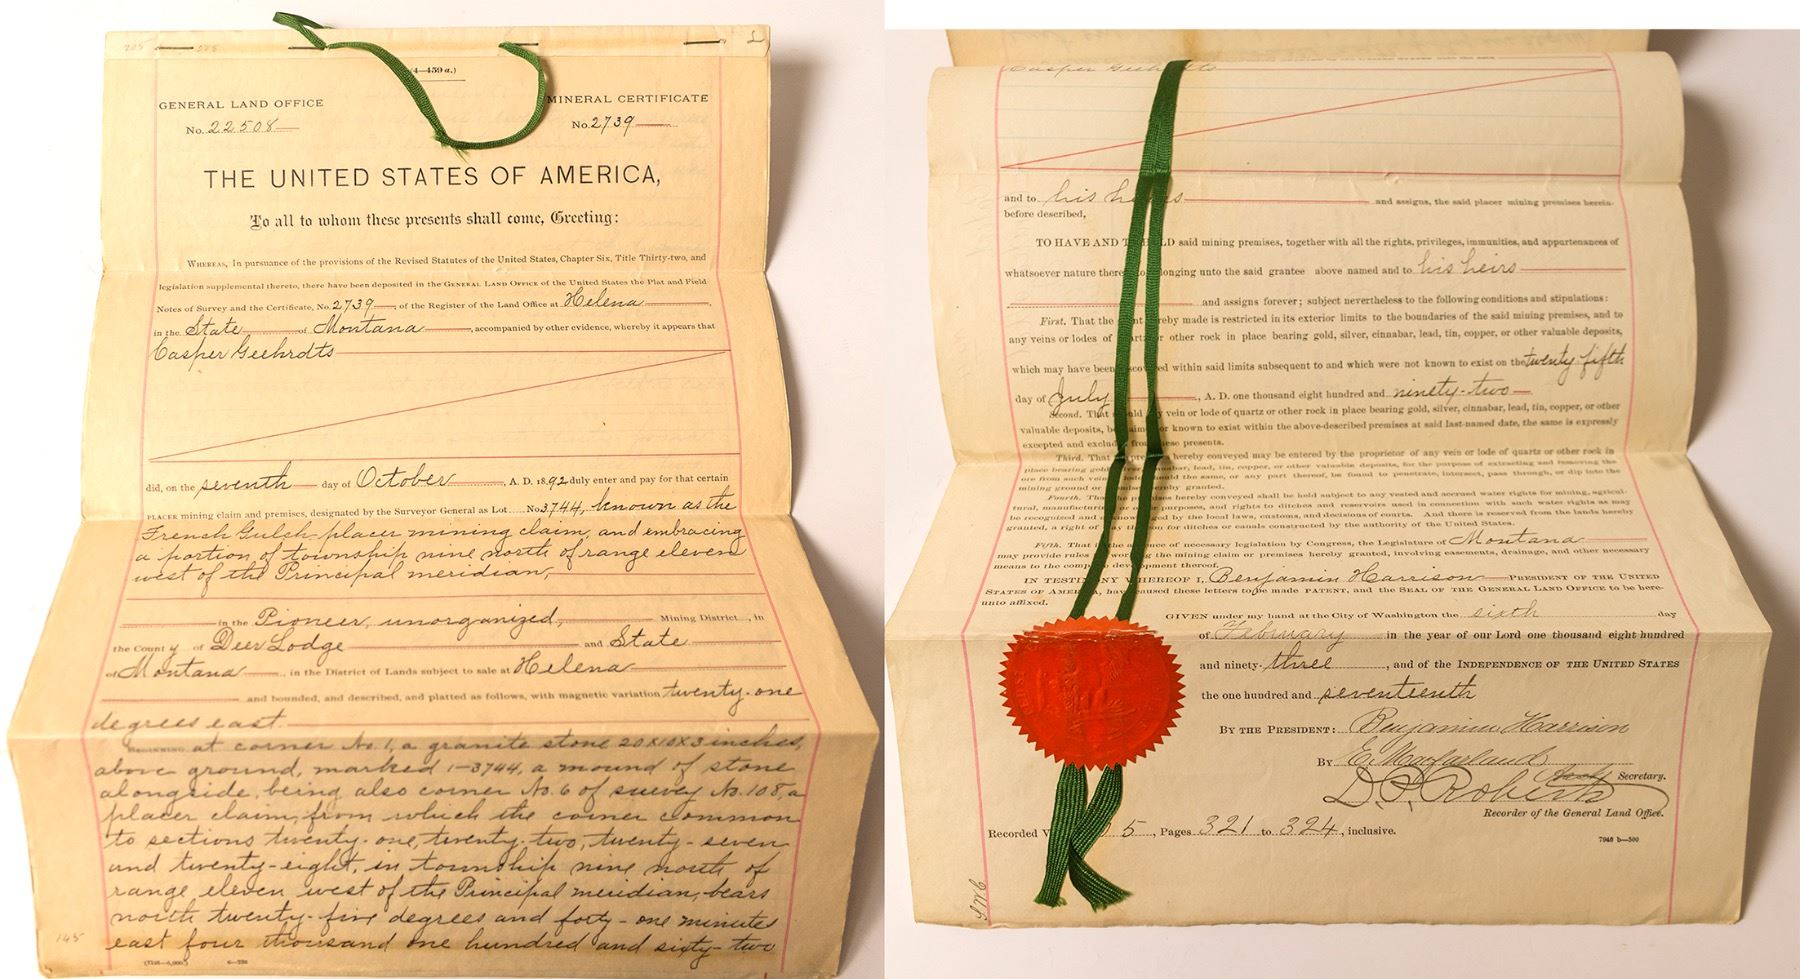 (4—459 a.)
GENERAL LAND OFFICE
No. 22508
MINERAL CERTIFICATE
No. 2739
THE UNITED STATES OF AMERICA,
To all to whom these presents shall come, Greeting:
WHEREAS, In pursuance of the provisions of the Revised Statutes of the United States, Chapter Six, Title Thirty-two, and
legislation supplemental thereto, there have been deposited in the GENERAL LAND OFFICE of the United States the Plat and Field
Notes of Survey and the Certificate, No. 2739, of the Register of the Land Office at Helena,
in the State of Montana, accompanied by other evidence, whereby it appears that
Casper Geehrdts
did, on the seventh day of October, A. D. 1892 duly enter and pay for that certain
PLACER mining claim and premises, designated by the Surveyor General as Lot No. 3744, known as the
French Gulch placer mining claim, and embracing
a portion of township nine north of range eleven
west of the Principal meridian,
in the Pioneer, unorganized, Mining District, in
the County of Deer Lodge and State
of Montana, in the District of Lands subject to sale at Helena
and bounded, and described, and platted as follows, with magnetic variation twenty-one
degrees east.
BEGINNING at corner No. 1, a granite stone 20x10x3 inches,
above ground, marked 1-3744, a mound of stone
alongside, being also corner No. 6 of survey No. 108, a
placer claim, from which the corner common
to sections twenty-one, twenty-two, twenty-seven
and twenty-eight, in township nine north of
range eleven west of the Principal meridian, bears
north twenty-five degrees and forty-one minutes
east four thousand one hundred and sixty-two
145
Casper Geehrdts
and to his heirs and assigns, the said placer mining premises herein-
before described,
TO HAVE AND TO HOLD said mining premises, together with all the rights, privileges, immunities, and appurtenances of
whatsoever nature belonging unto the said grantee above named and to his heirs
and assigns forever; subject nevertheless to the following conditions and stipulations:
First. That the hereby made is restricted in its exterior limits to the boundaries of the said mining premises, and to
any veins or lodes of quartz or other rock in place bearing gold, silver, cinnabar, lead, tin, copper, or other valuable deposits,
which may have been discovered within said limits subsequent to and which were not known to exist on the twenty-fifth
day of July, A. D. one thousand eight hundred and ninety-two
Second. That should any vein or lode of quartz or other rock in place bearing gold, silver, cinnabar, lead, tin, copper, or other
valuable deposits, be claimed or known to exist within the above-described premises at said last-named date, the same is expressly
excepted and excluded from these presents.
Third. That premises hereby conveyed may be entered by the proprietor of any vein or lode of quartz or other rock in
place bearing gold, silver, cinnabar, lead, tin, copper, or other valuable deposits, for the purpose of extracting and removing the
ore from such vein, should the same, or any part thereof, be found to penetrate, intersect, pass through, or dip into the
mining ground or premises hereby granted.
Fourth. That the premises hereby conveyed shall be held subject to any vested and accrued water rights for mining, agricul-
tural, manufacturing or other purposes, and rights to ditches and reservoirs used in connection with such water rights as may
be recognized and acknowledged by the local laws, customs, and decisions of courts. And there is reserved from the lands hereby
granted, a right of way thereon for ditches or canals constructed by the authority of the United States.
Fifth. That in the absence of necessary legislation by Congress, the Legislature of Montana
may provide rules for working the mining claim or premises hereby granted, involving easements, drainage, and other necessary
means to the complete development thereof.
IN TESTIMONY WHEREOF I, Benjamin Harrison PRESIDENT OF THE UNITED
STATES OF AMERICA, have caused these letters to be made PATENT, and the SEAL OF THE GENERAL LAND OFFICE to be here-
unto affixed.
GIVEN under my hand at the City of Washington the sixth day
of February in the year of our Lord one thousand eight hundred
and ninety-three, and of the INDEPENDENCE OF THE UNITED STATES
the one hundred and seventeenth
BY THE PRESIDENT: Benjamin Harrison
By E. Macfarland
Secretary.
D. P. Roberts
Recorder of the General Land Office.
Recorded 5, Pages 321 to 324, inclusive.
7940 b—500